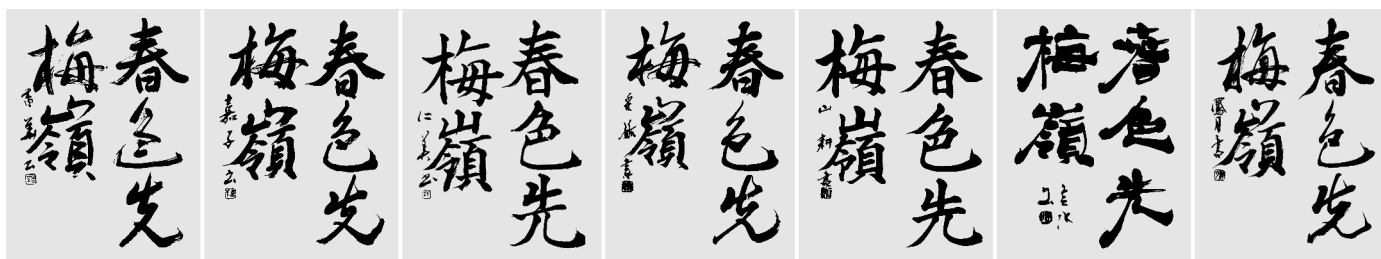 春色先
梅嶺
春色先
梅嶺
嘉子書
春色先
梅嶺
仁美書
春色先
梅嶺
春色先
梅嶺
山耕書
春色先
梅嶺
春色先
梅嶺